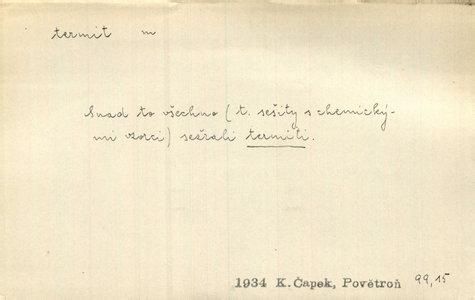 termit m
Snad to všechno (t. sešity s chemický-
mi vzorci) sežrali termiti.
1934 K.Čapek, Povětroň 99,15